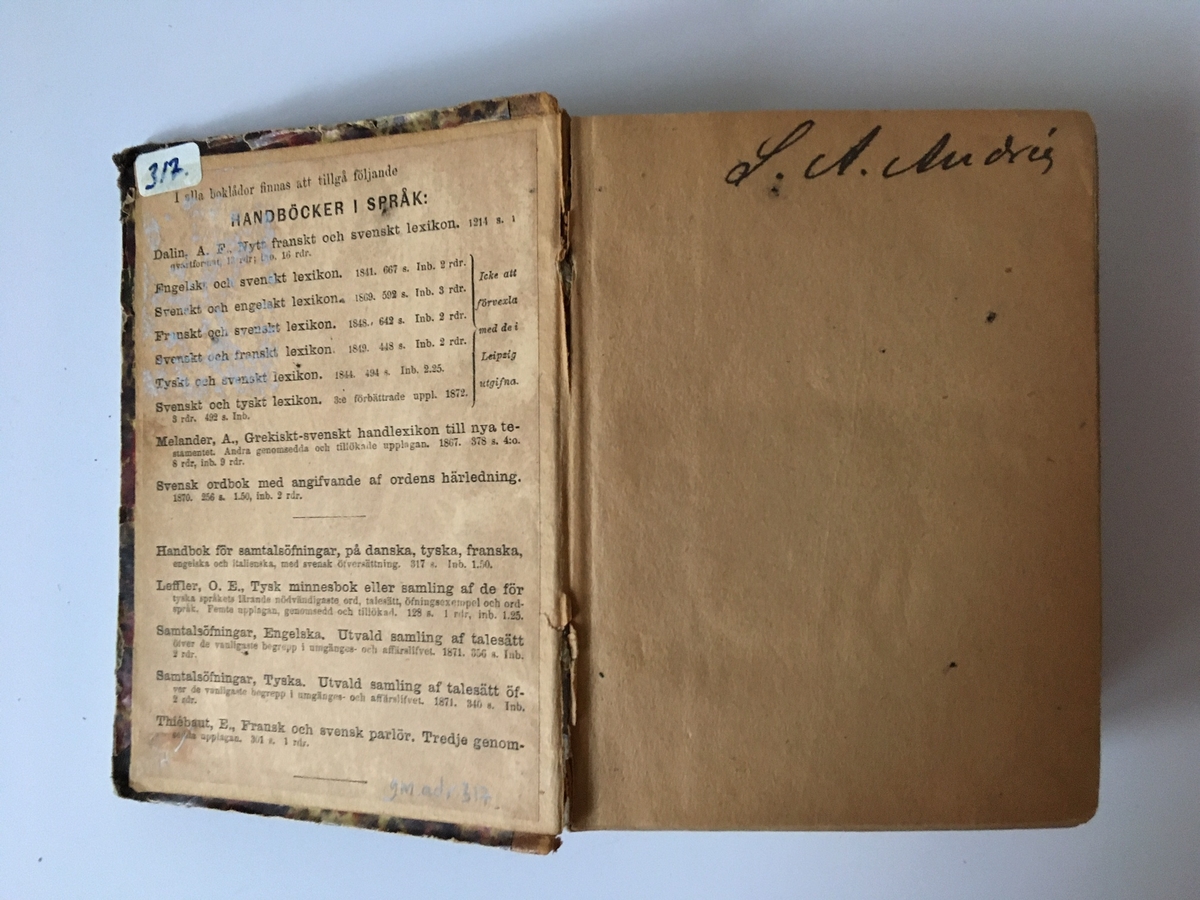 317.
I alla boklådor finnas att tillgå följande
HANDBÖCKER I SPRÅK:
Dalin, A. F., Nytt franskt och svenskt lexikon. 1214 s. i
qvartformat, rdr; inb. 16 rdr.
Engelskt och svenskt lexikon. 1841. 667 s. Inb. 2 rdr.
Svenskt och engelskt lexikon. 1869. 592 s. Inb. 3 rdr.
Franskt och svenskt lexikon. 1848. 642 s. Inb. 2 rdr.
Svenskt och franskt lexikon. 1849. 448 s. Inb. 2 rdr.
Tyskt och svenskt lexikon. 1844. 494 s. Inb. 2.25.
Svenskt och tyskt lexikon. 3:e förbättrade uppl. 1872.
3 rdr. 492 s. Inb.
Icke att
förvexla
med de i
Leipzig
utgifna.
Melander, A., Grekiskt-svenskt handlexikon till nya te-
stamentet. Andra genomsedda och tillökade upplagan. 1867. 378 s. 4:o.
8 rdr, inb. 9 rdr.
Svensk ordbok med angifvande af ordens härledning.
1870. 256 s. 1.50, inb. 2 rdr.
Handbok för samtalsöfningar, på danska, tyska, franska,
engelska och italienska, med svensk öfversättning. 317 s. Inb. 1.50.
Leffler, O. E., Tysk minnesbok eller samling af de för
tyska språkets lärande nödvändigaste ord, talesätt, öfningsexempel och ord-
språk. Femte upplagan, genomsedd och tillökad. 128 s. 1 rdr, inb. 1.25.
Samtalsöfningar, Engelska. Utvald samling af talesätt
öfver de vanligaste begrepp i umgänges- och affärslifvet. 1871. 356 s. Inb.
2 rdr.
Samtalsöfningar, Tyska. Utvald samling af talesätt öf-
ver de vanligaste begrepp i umgänges- och affärslifvet. 1871. 340 s. Inb.
2 rdr.
Thiébaut, E., Fransk och svensk parlör. Tredje genom-
sedda upplagan. 301 s. 1 rdr.
317
S. A. Andrée